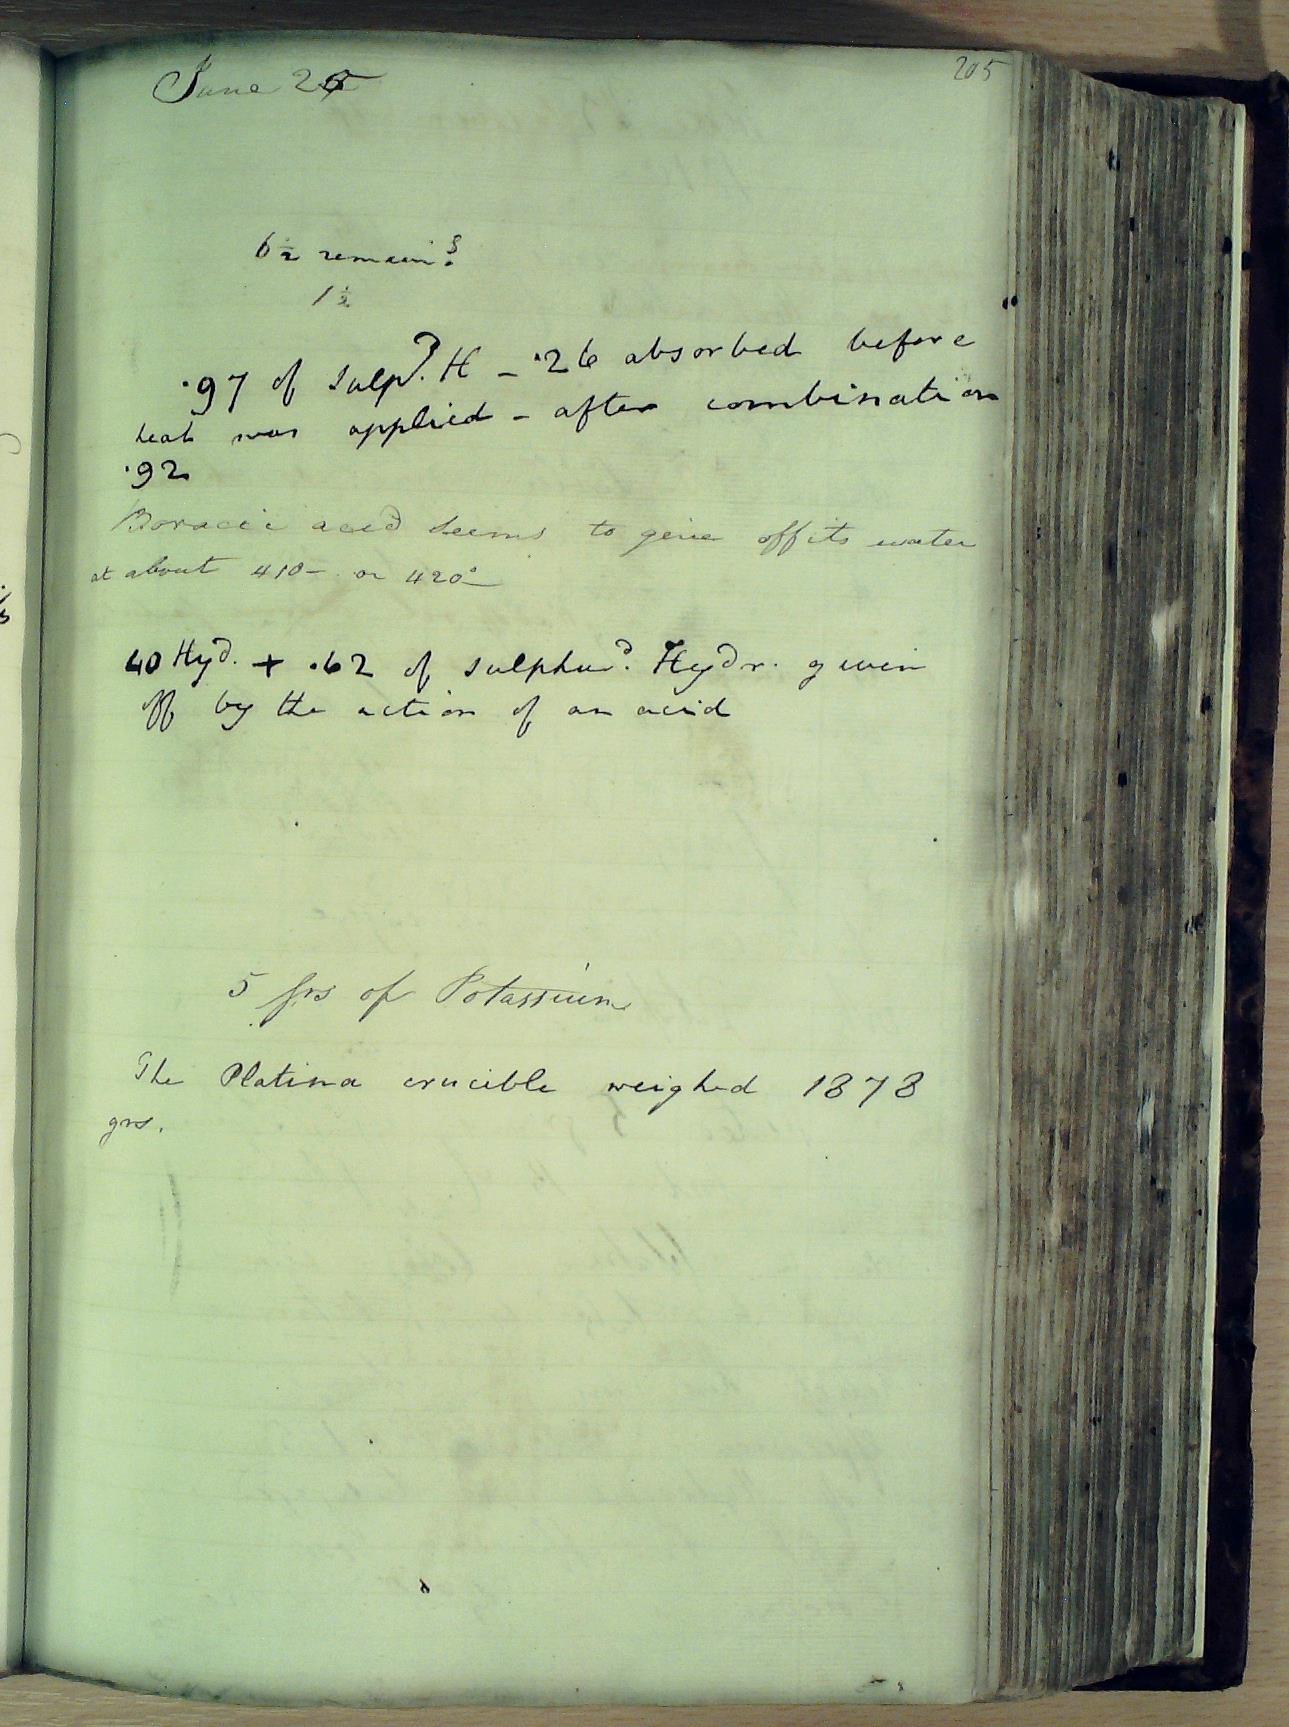 205
June 26
6 1/2 remain.g
1 1/2
·97 of Sulpd. H - ·26 absorbed before
heat was applied - after combination
·92
Boracic acid seems to give off its water
at about 410 - or 420°
40 Hyd. + .62 of sulphud. Hydr. given
off by the action of an acid
5 grs of Potassium
The Platina crucible weighed 1878
grs.